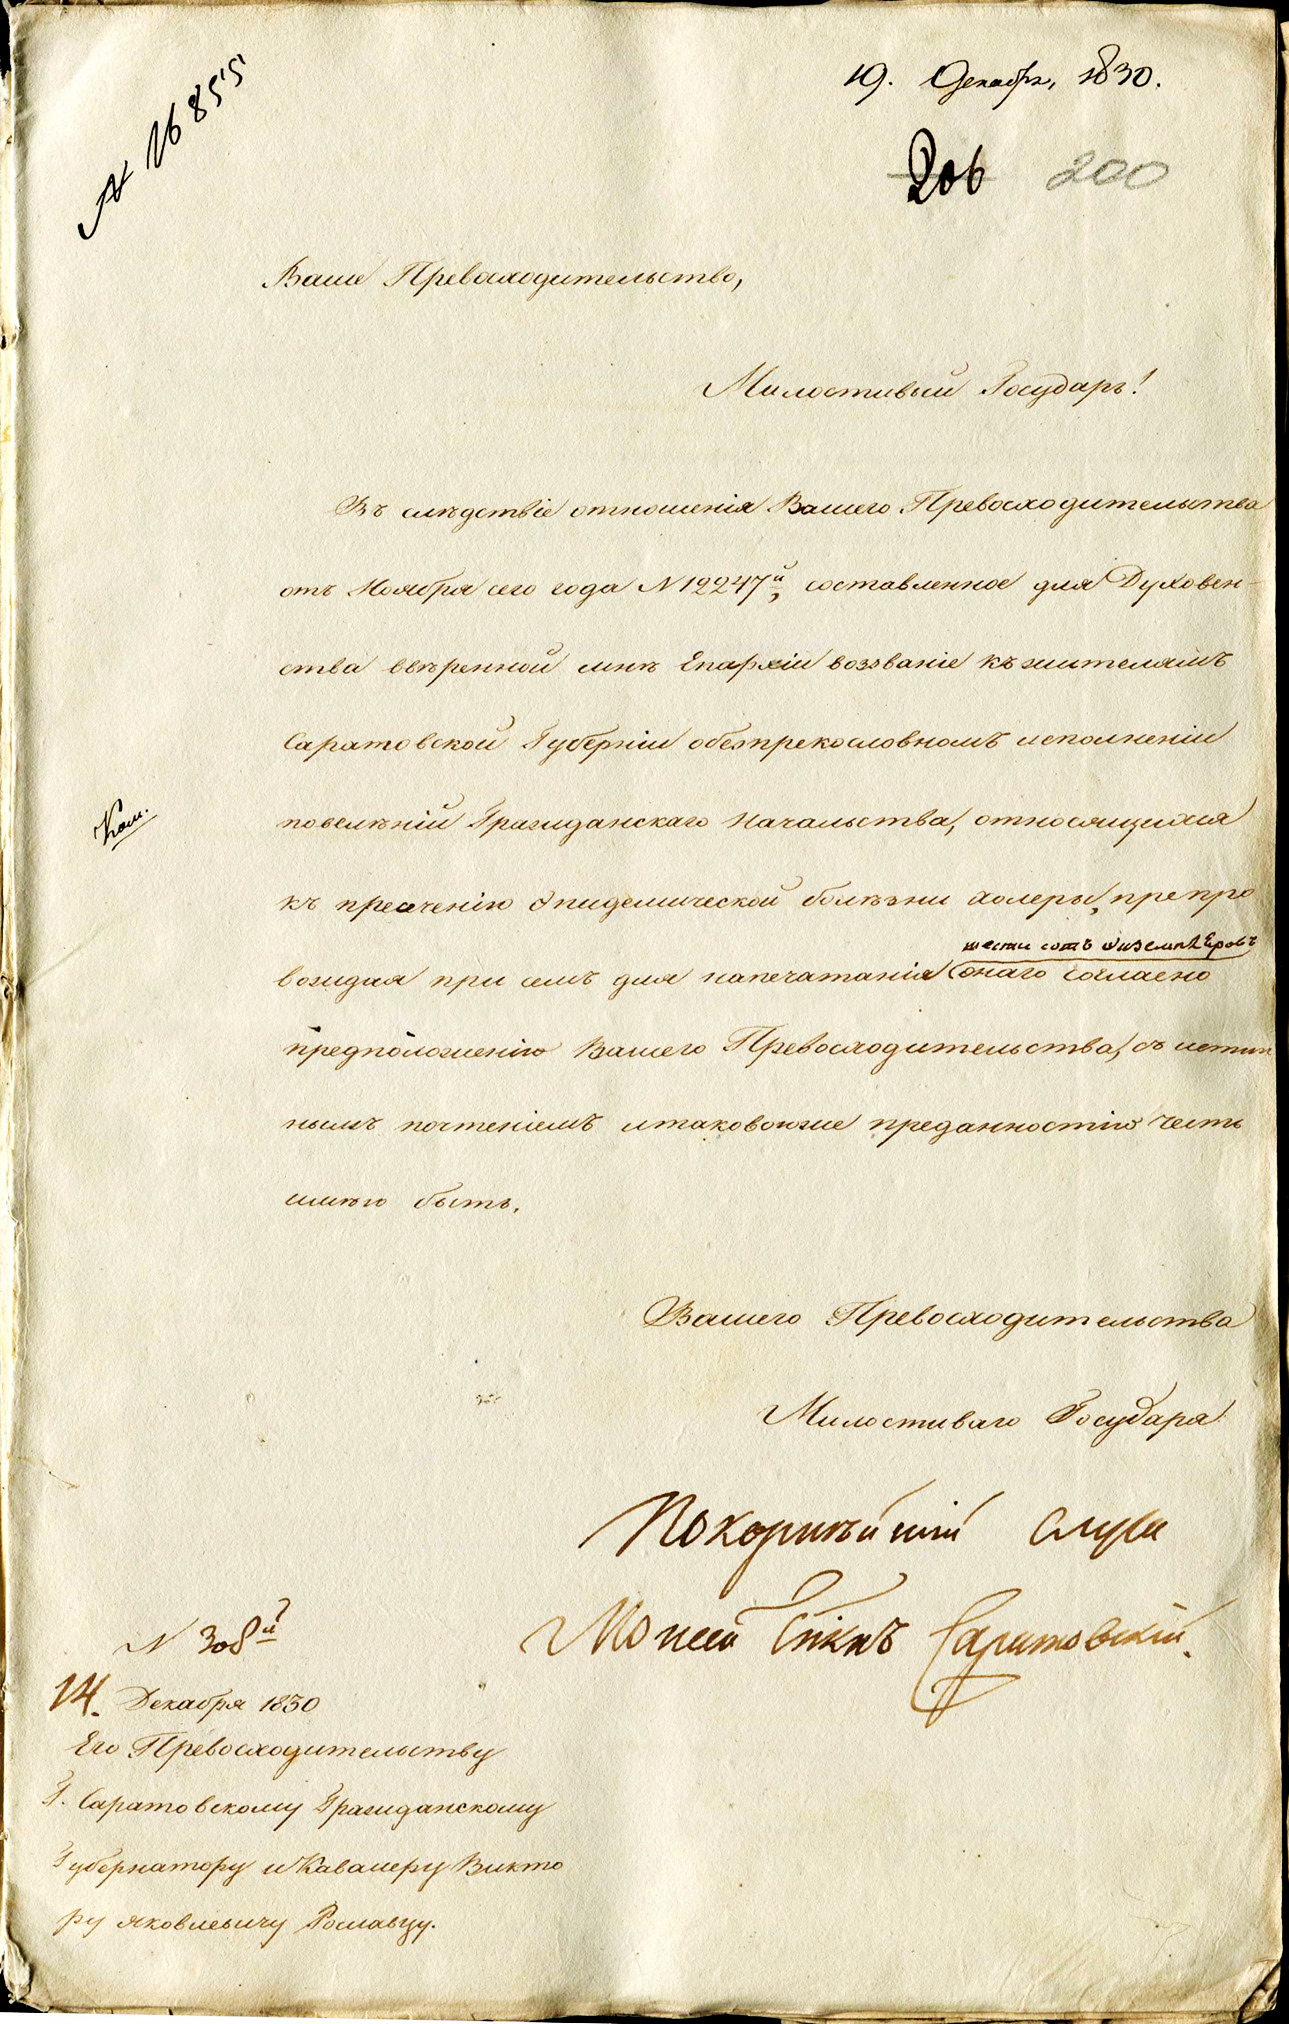 № 16855
19. Декабря, 1830.
206 200
Ваше Превосходительство,
Милостивый Государь!
Въ слѣдствіе отношенія Вашего Превосходительства
отъ Ноября сего года № 12247й, составленное для Духовен-
ства ввѣренной мнѣ Епархіи воззваніе къ жителямъ
Саратовской Губерніи обезпрекословномъ исполненіи
повелѣній Гражданскаго Начальства, относящихся
къ пресеченію Эпидемической болѣзни холеры, препро
шести сотъ Экземпляровъ
вождая при семъ для напечатанія онаго согласно
предположенію Вашего Превосходительства, съ истин
нымъ почтеніемъ итаковоюже преданностію честь
имѣю быть,
Вашего Превосходительства
Милостиваго Государя
Покорнѣйшій слуга
Моисей Епкпъ Саратовскій.
№ 308й
14. Декабря 1830
Его Превосходительству
Г. Саратовскому Гражданскому
Губернатору и Кавалеру Викто
ру Яковлевичу Рославцу.